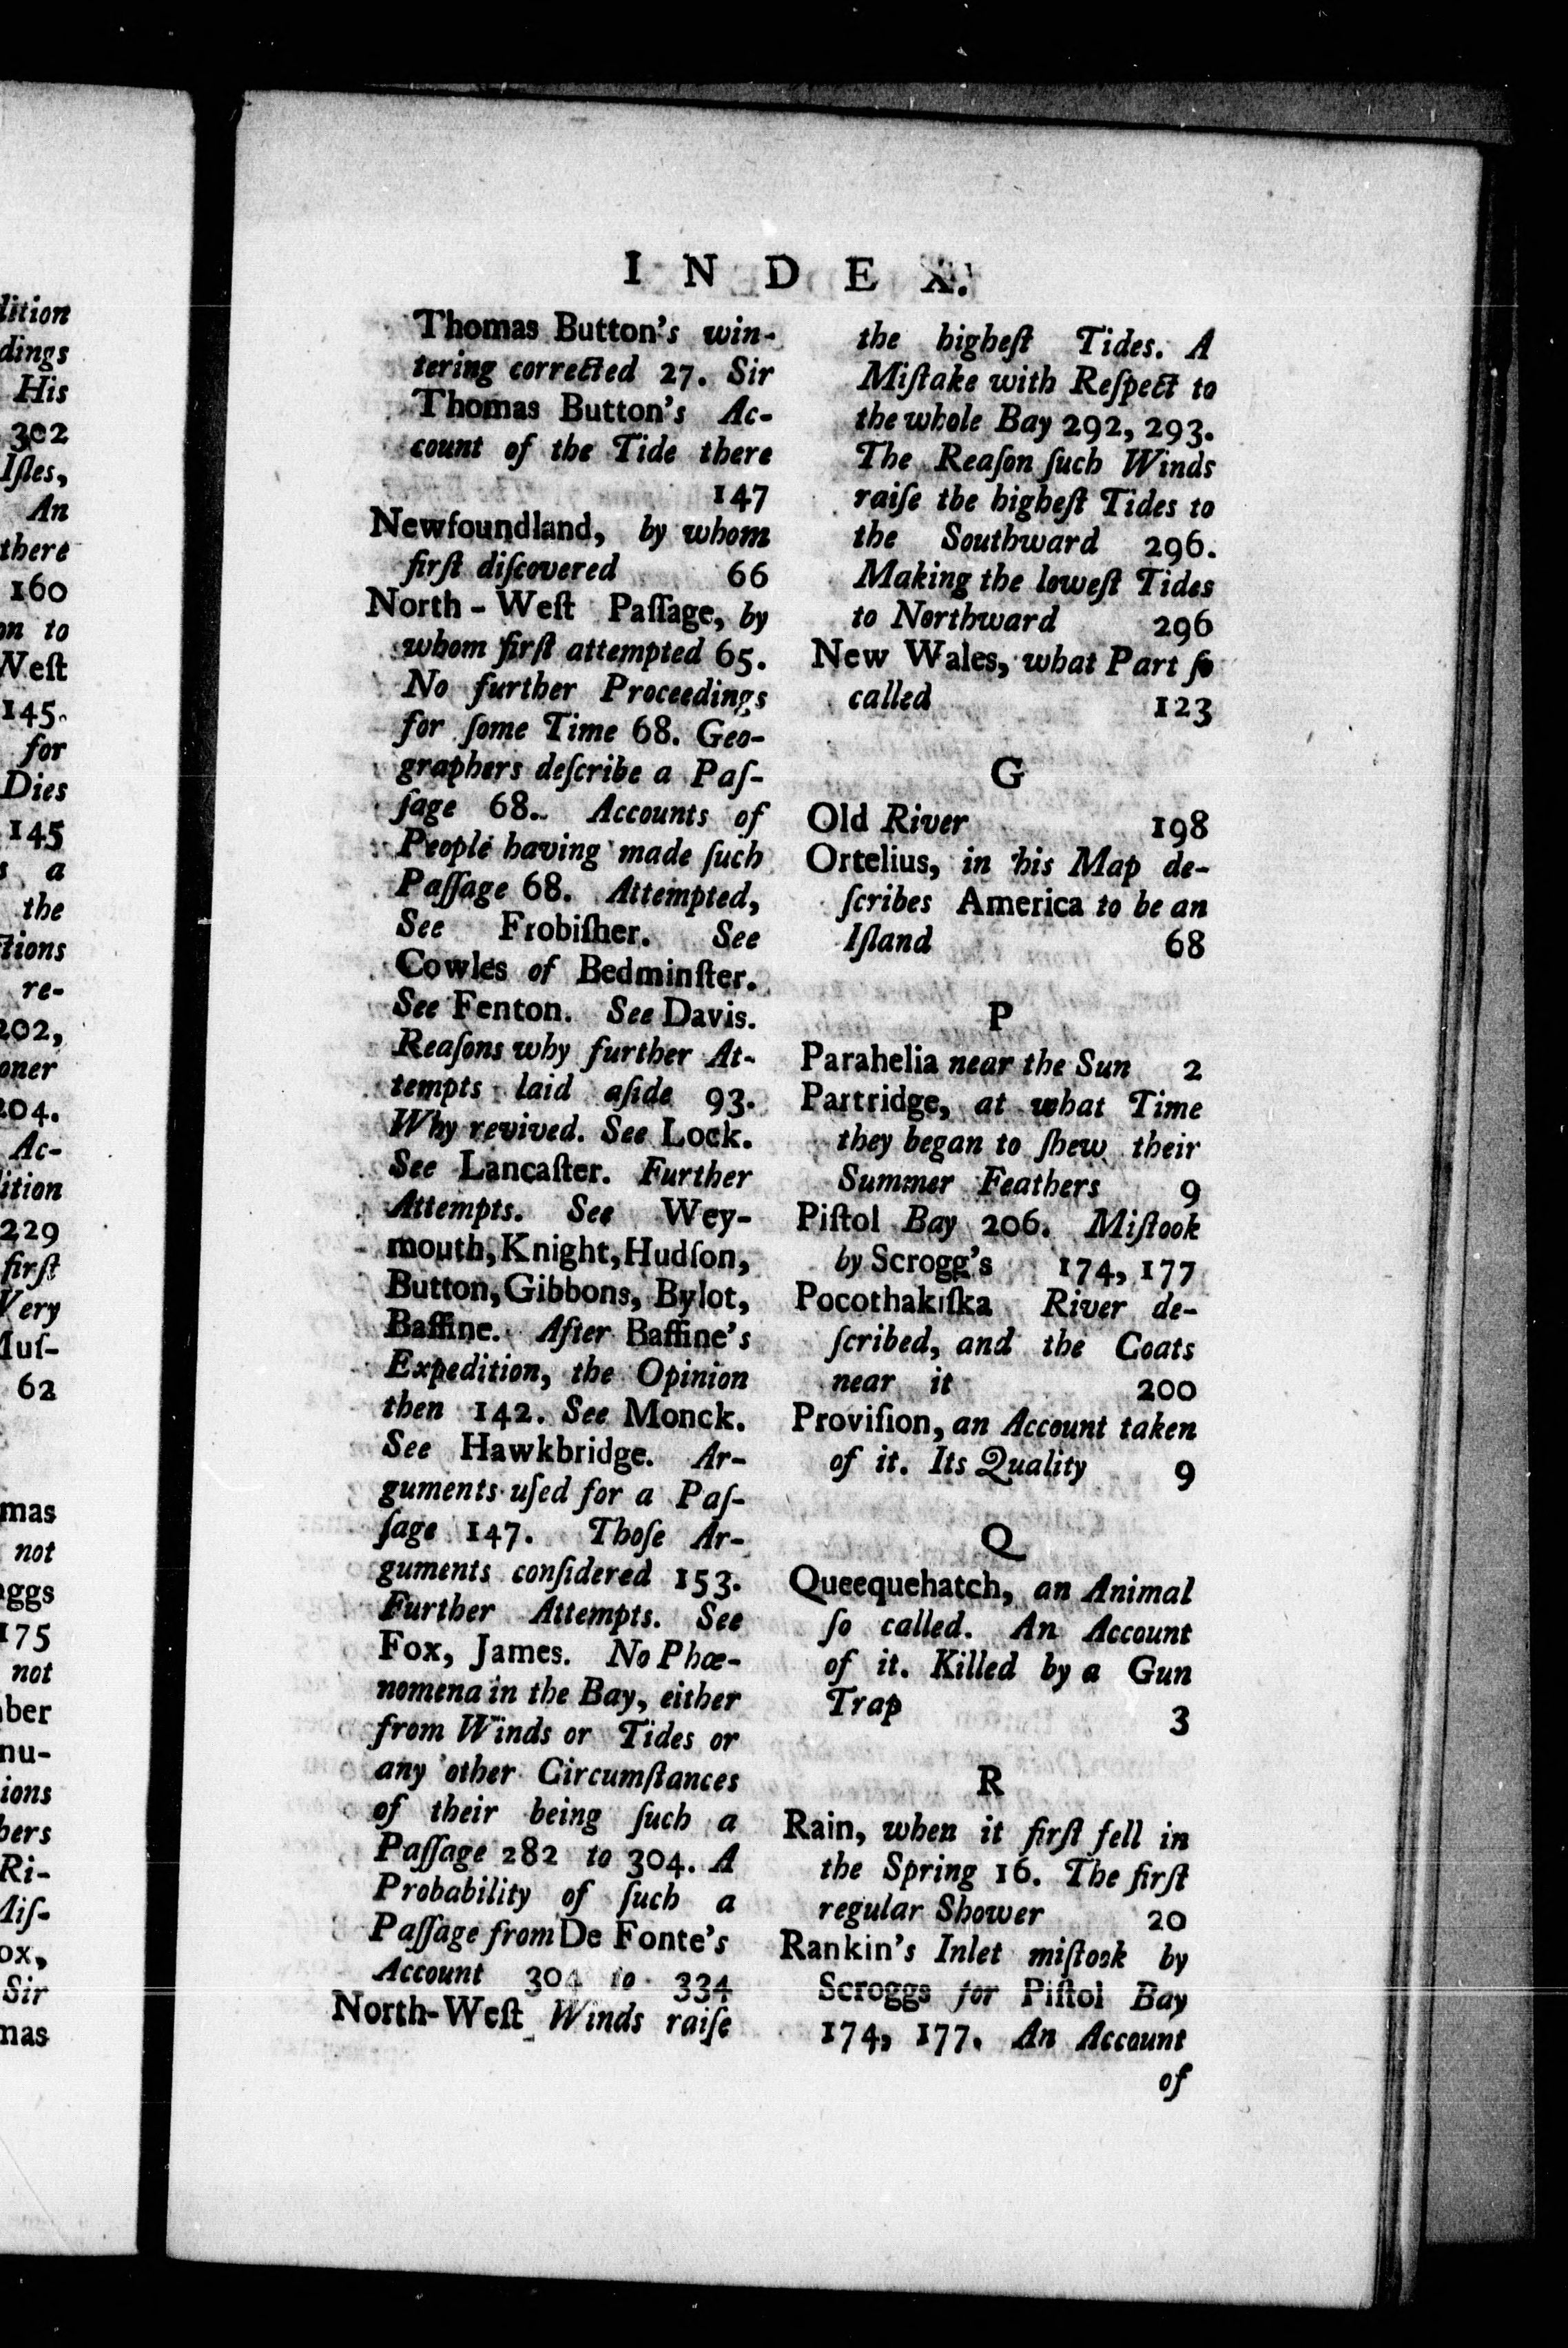 lition
dings
His
302
Iſles,
An
there
160
on to
Weſt
145.
for
Dies
145
s a
the
ctions
re-
202,
oner
204.
Ac-
lition
229
firſt
Very
Muſ-
62
mas
not
ggs
175
not
ber
nu-
ions
hers
Ri-
Miſ-
ox,
Sir
mas
I N D E X.
Thomas Button's win-
tering corrected 27. Sir
Thomas Button's Ac-
count of the Tide there
147
Newfoundland, by whom
firſt diſcovered 66
North-Weſt Paſſage, by
whom firſt attempted 65.
No further Proceedings
for ſome Time 68. Geo-
graphers deſcribe a Paſ-
ſage 68. Accounts of
People having made ſuch
Paſſage 68. Attempted,
See Frobiſher. See
Cowles of Bedminſter.
See Fenton. See Davis.
Reaſons why further At-
tempts laid aſide 93.
Why revived. See Lock.
See Lancaſter. Further
Attempts. See Wey-
mouth, Knight, Hudſon,
Button, Gibbons, Bylot,
Baffine. After Baffine's
Expedition, the Opinion
then 142. See Monck.
See Hawkbridge. Ar-
guments uſed for a Paſ-
ſage 147. Thoſe Ar-
guments conſidered 153.
Further Attempts. See
Fox, James. No Phœ-
nomena in the Bay, either
from Winds or Tides or
any other Circumſtances
of their being ſuch a
Paſſage 282 to 304. A
Probability of ſuch a
Paſſage from De Fonte's
Account 304 to 334
North-Weſt Winds raiſe
the higheſt Tides. A
Miſtake with Reſpect to
the whole Bay 292, 293.
The Reaſon ſuch Winds
raiſe the higheſt Tides to
the Southward 296.
Making the loweſt Tides
to Northward 296
New Wales, what Part ſo
called 123
G
Old River 198
Ortelius, in his Map de-
ſcribes America to be an
Iſland 68
P
Parahelia near the Sun 2
Partridge, at what Time
they began to ſhew their
Summer Feathers 9
Piſtol Bay 206. Miſtook
by Scrogg's 174, 177
Pocothakiſka River de-
ſcribed, and the Coats
near it 200
Proviſion, an Account taken
of it. Its Quality 9
Q
Queequehatch, an Animal
ſo called. An Account
of it. Killed by a Gun
Trap 3
R
Rain, when it firſt fell in
the Spring 16. The firſt
regular Shower 20
Rankin's Inlet miſtook by
Scroggs for Piſtol Bay
174, 177. An Account
of